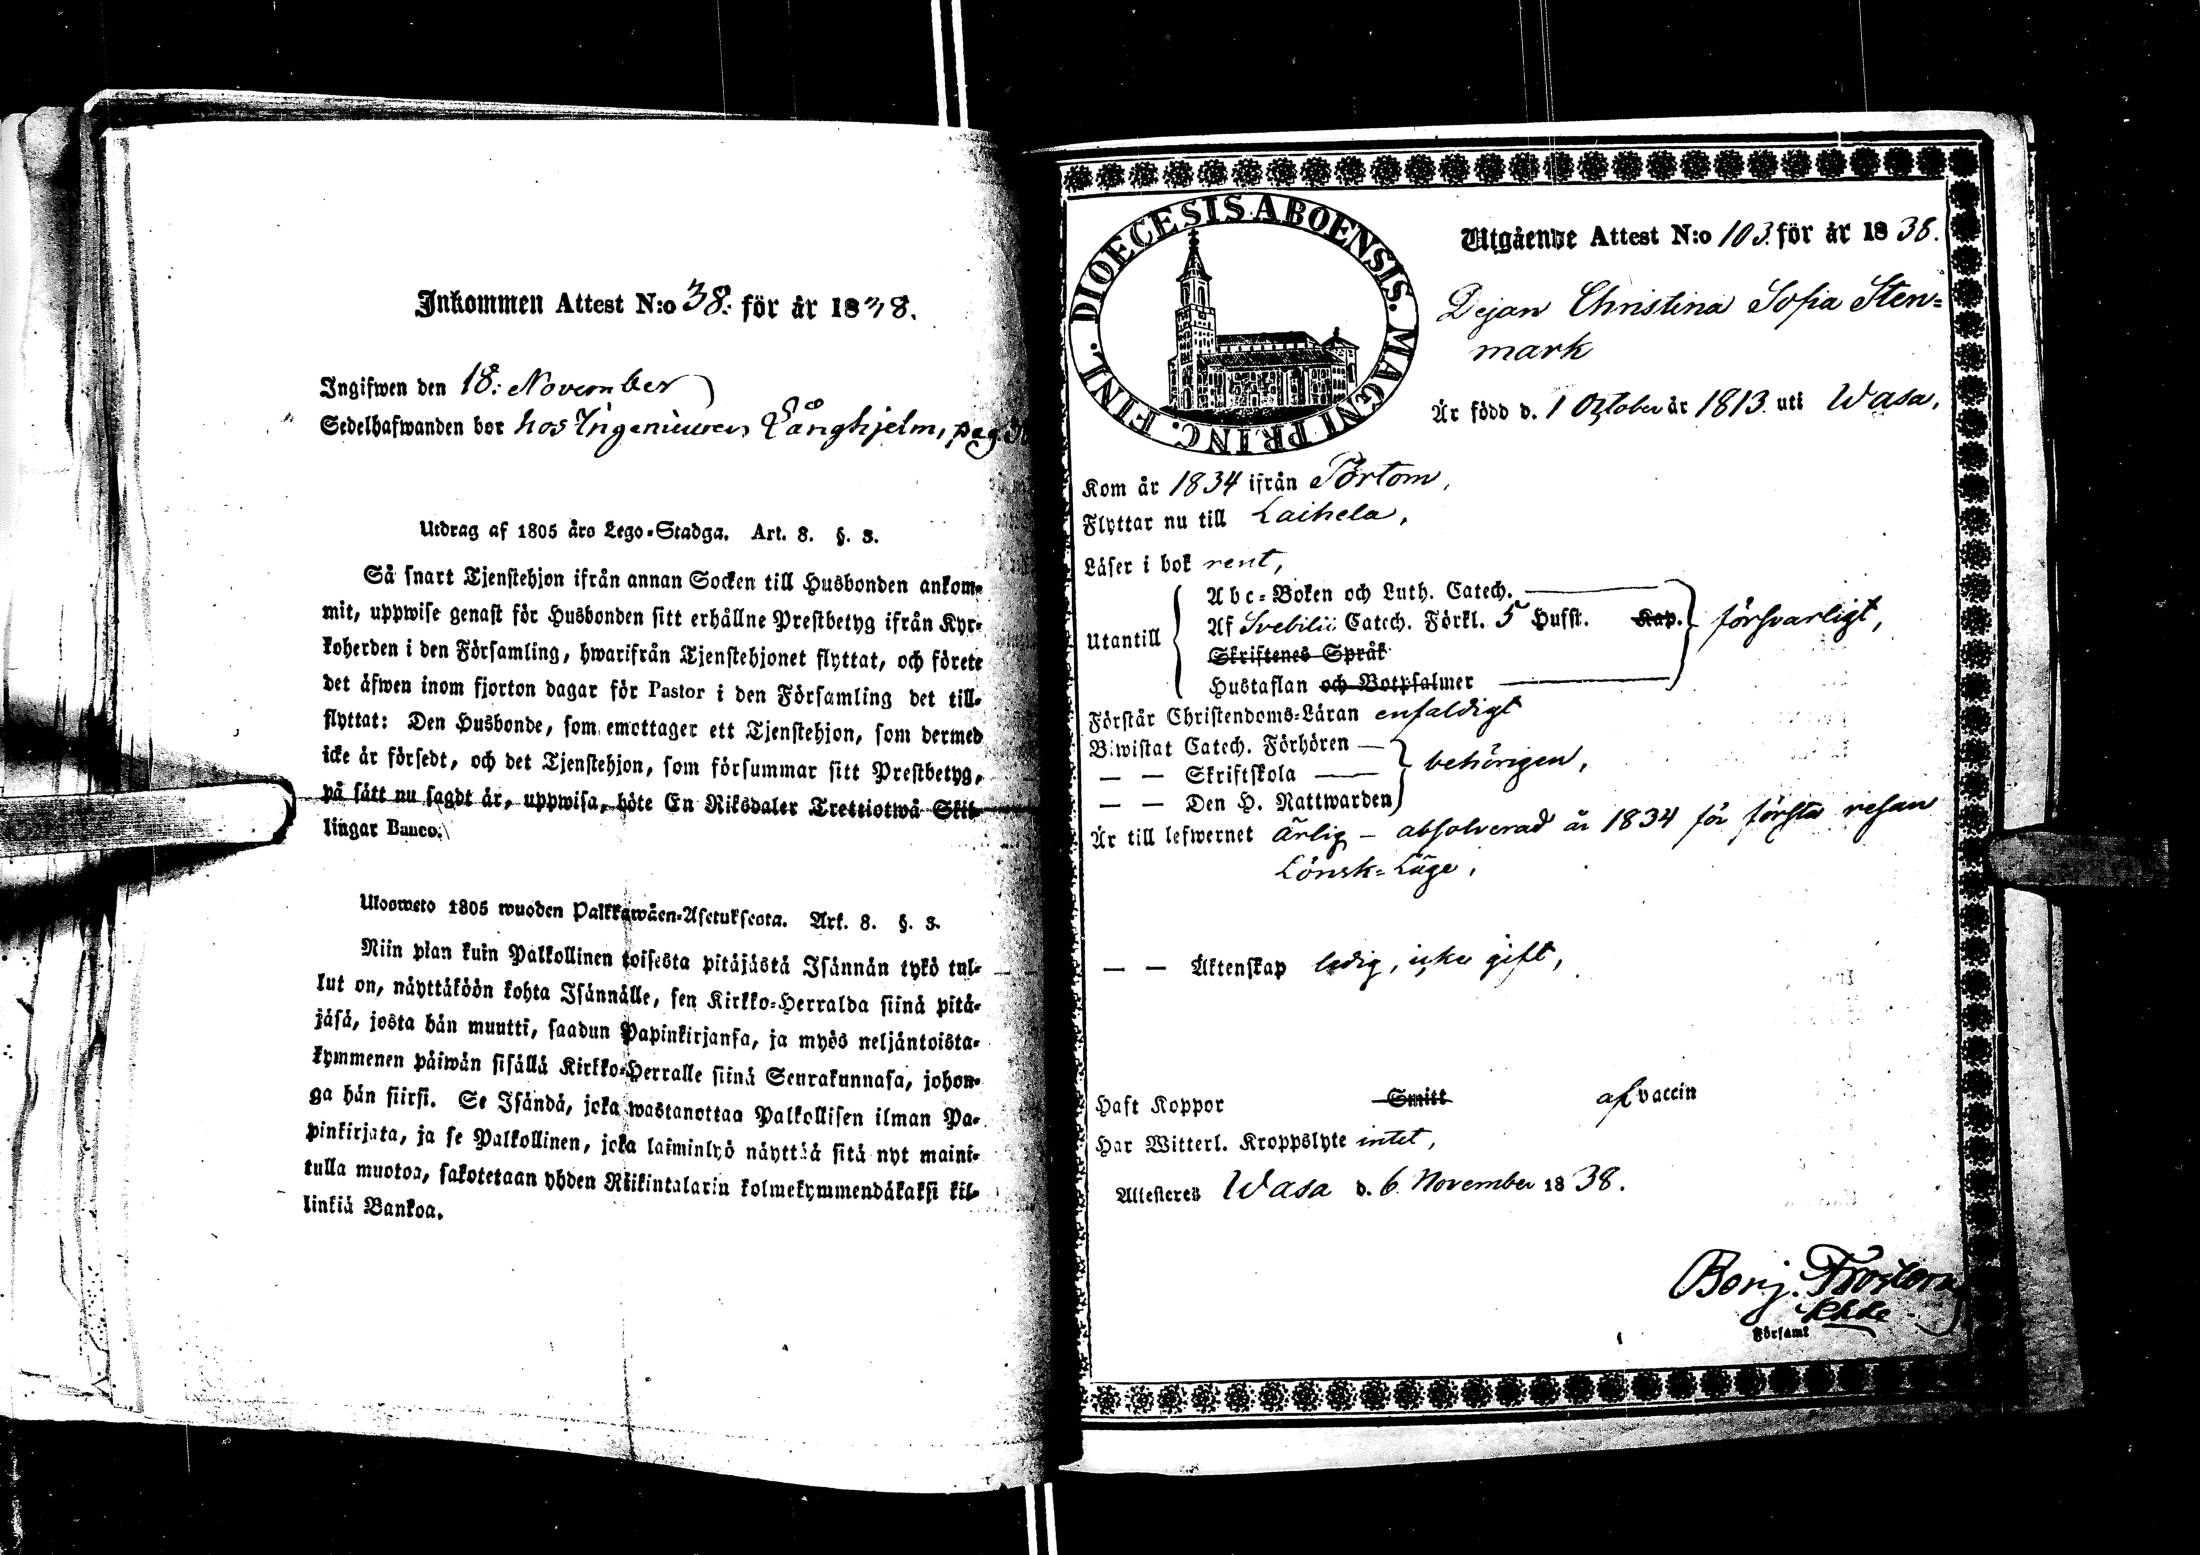 Inkommen Attest N:o 38. för år 1838.
Ingifwen den 18: November
Sedelhafwanden bor hos Ingenieuren Långhjelm, pag.
Utdrag af 1805 års Lego-Stadga. Art. 8. §. 3.
Så snart Tjenstehjon ifrån annan Socken till Husbonden ankom-
mit, uppwise genast för Husbonden sitt erhållne Prestbetyg ifrån Kyr-
koherden i den Församling, hwarifrån Tjenstehjonet flyttat, och förete
det äfwen inom fjorton dagar för Pastor i den Församling det till-
flyttat: Den Husbonde, som emottager ett Tjenstehjon, som dermed
icke är försedt, och det Tjenstehjon, som försummar sitt Prestbetyg,
på sätt nu sagdt är, uppwisa, böte En Riksdaler Trettiotwå Skil-
lingar Banco.
Ulosweto 1805 wuoden Palkkawäen-Asetuksesta. Art. 8. §. 3.
Niin pian kuin Palkollinen toisesta pitäjästä Isännän tykö tul-
lut on, näyttäköön kohta Isännälle, sen Kirkko-Herralda siinä pitä-
jäsä, josta hän muutti, saadun Papinkirjansa, ja myös neljäntoista-
kymmenen päiwän sisällä Kirkko-Herralle siinä Seurakunnasa, johon-
ga hän siirsi. Se Isändä, joka wastanottaa Palkollisen ilman Pa-
pinkirjata, ja se Palkollinen, joka laiminlyö näyttää sitä nyt maini-
tulla muotoa, sakotetaan yhden Riikintalarin kolmekymmendäkaksi kil-
linkiä Bankoa.
DIOECESIS ABOENSIS. MAGNI PRINC. FINL.
Utgående Attest N:o 103. för år 1838.
Dejan Christina Sofia Sten=
mark
Är född d. 1 October år 1813. uti Wasa,
Kom år 1834 ifrån Pörtom,
Flyttar nu till Laihela,
Läser i bok rent,
Utantill
Abc-Boken och Luth. Catech.
Af Svebilii Catech. Förkl. 5 Hufst. Kap. försvarligt,
Skriftenes Språk
Hustaflan och Botpsalmer
Förstår Christendoms-Läran enfaldigt
Biwistat Catech. Förhören
— — Skriftskola behörigen,
— — Den H. Nattwarden
Är till lefwernet ärlig – absolverad år 1834 för första resan
Lönsk=Läge,
— — Äktenskap ledig, icke gift,
Haft Koppor Smitt af vaccin
Har Witterl. Kroppslyte intet,
Attesteres Wasa d. 6 November 1838.
Församl